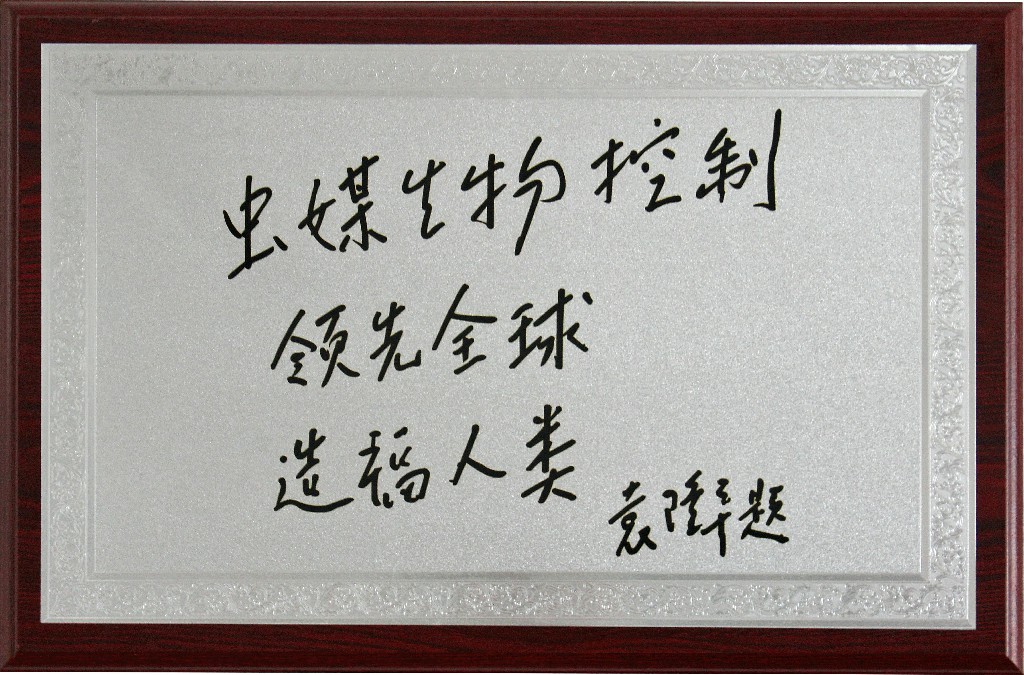 虫媒生物控制
领先全球
造福人类
袁隆平题